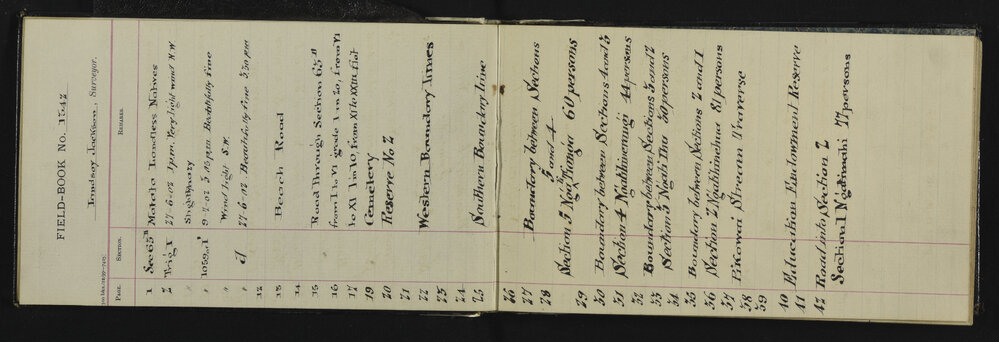 FIELD-BOOK No. 1542
Lindsay Jackson, Surveyor.
Page. Section. Remarks.
1 Sec 65ᴮ Matata Landless Natives
2 Trig I 27-6-02 1 p.m. Very light wind N.W
" Shorthairy
" 1059.1' 9-7-02 3.15 p.m. Beautifully fine
" Wind light S.W.
" J 27-6-02 Beautifully fine 3.30 pm
12
13 Beach Road
14
15 Road through Section 65ᴮ
16 from I to VI grade 1 in 20, from VI
17 to XI 1 in 10, from XI to XXIII flat
19 Cemetery
20 Reserve No 2
21
22 Western Boundary lines
23
24
25 Southern Boundary line
26
27 Boundary between Sections
28 3 and 4
Section 3 60 persons
29
30 Boundary between Sections 4 and 5
31 Section 4 Ngaihinenuigi 44 persons
32
33 Boundary between Sections 3 and 2
34 Section 3 Ngati Iha 50 persons
35 Boundary between Sections 2 and 1
36 Section 2 Ngaihinehua 81 persons
37 Pikowai Stream Traverse
38
39
40 Education Endowment Reserve
41
42 Road into Section 2
Section 1 Ngatimaki 77 persons